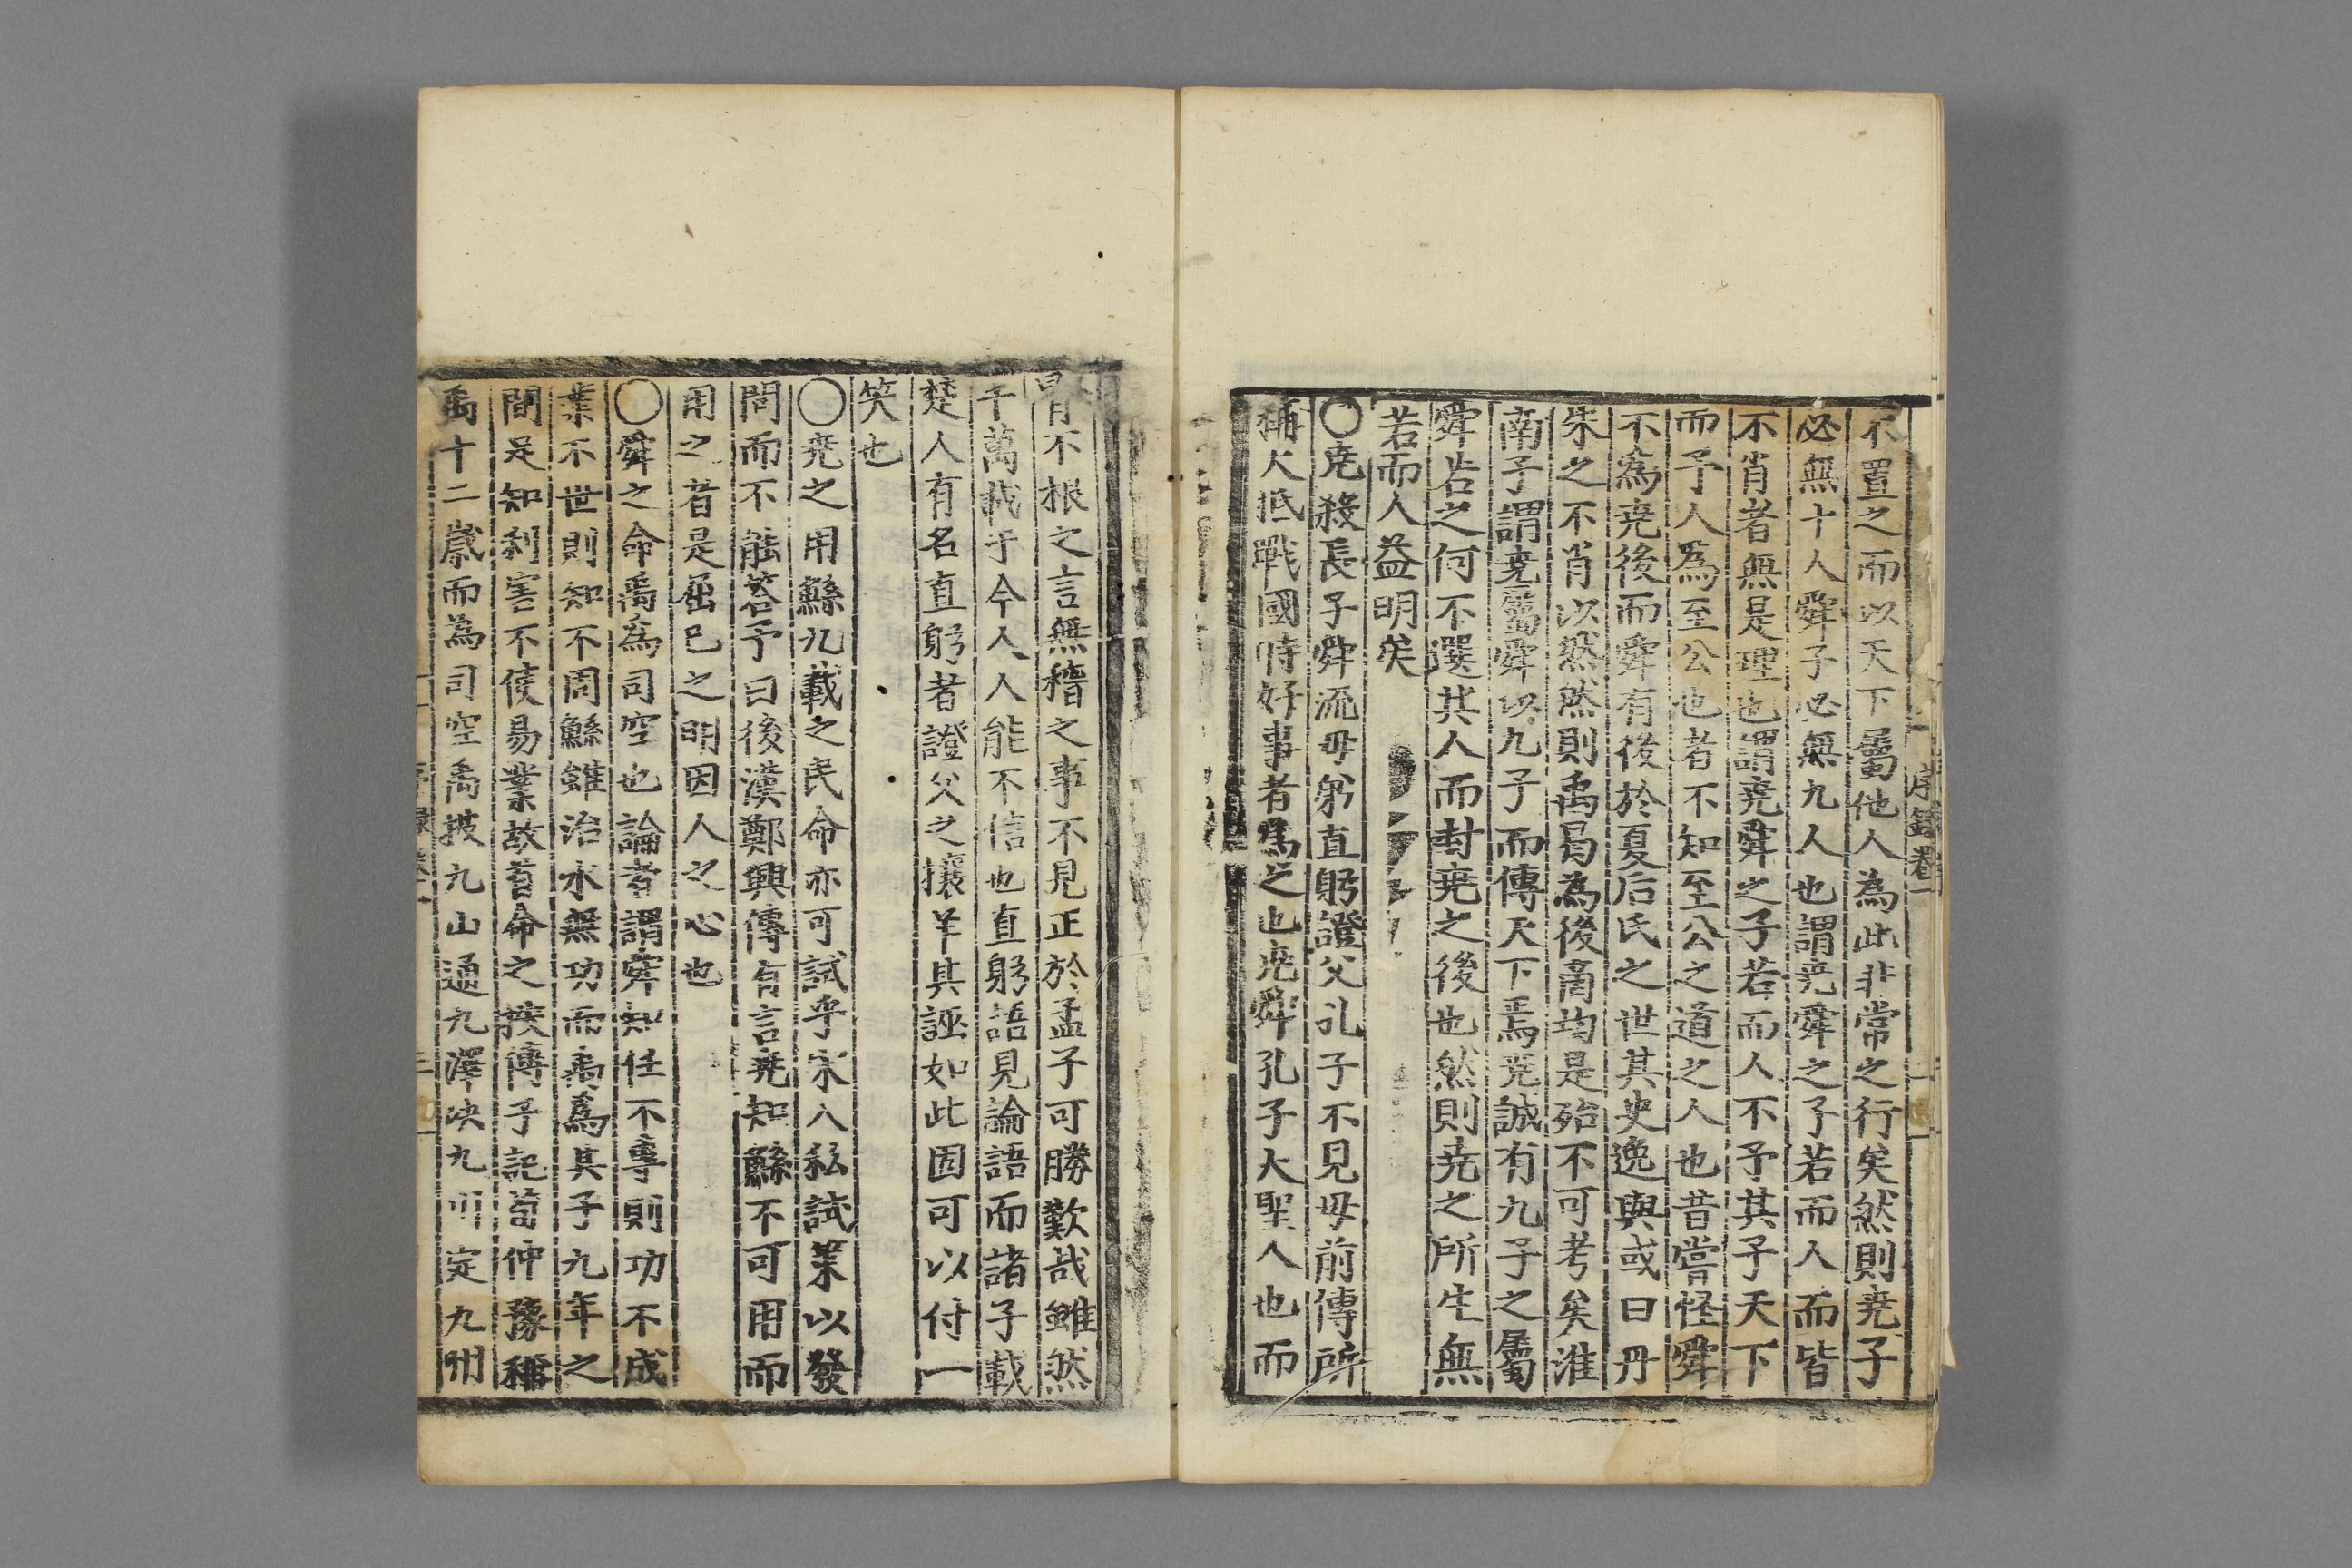 不置之而以天下屬他人為此非常之行矣然則堯子
必無十人舜子必無九人也謂堯舜之子若而人而皆
不肖者無是理也謂堯舜之子若而人不予其子天下
而予人為至公也者不知至公之道之人也昔嘗怪舜
不為堯後而舜有後於夏后氏之世其史逸與或曰丹
朱之不肖以然然則禹曷為後商均是殆不可考矣淮
南子謂堯屬舜以九子而傳天下焉堯誠有九子之屬
舜岩之何不選其人而封堯之後也然則堯之所生無
若而人益明矣
〇堯殺長子舜流母弟直躬證父孔子不見母前傳所
稱大抵戰國時好事者為之也堯舜孔子大聖人也而
序錄卷一
二
不根之言無稽之事不見正於孟子可勝歎哉雖然
千萬載于今人人能不信也直躬語見論語而諸子載
楚人有名直躬者證父之攘羊其誣如此固可以付一
笑也
〇堯之用鯀九載之民命亦可試乎宋人私試策以發
問而不能答予曰後漢鄭興傳有言堯知鯀不可用而
用之者是屈己之明因人之心也
〇舜之命禹為司空也論者謂舜知任不專則功不成
業不世則知不周鯀雖治水無功而禹為其子九年之
間是知利害不使易業故首命之按傳子記荀仲豫稱
禹十二歲而為司空禹披九山通九澤决九川定九州